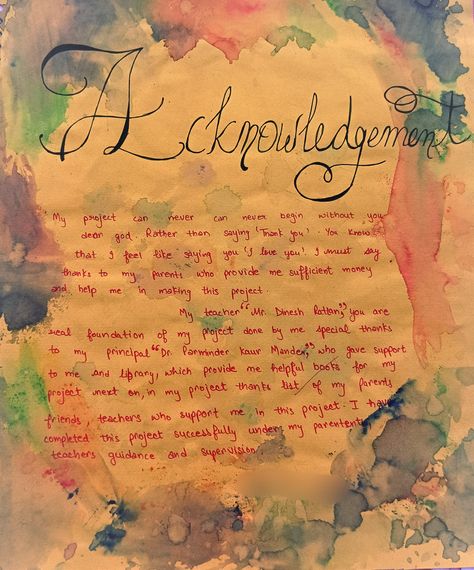 Acknowledgement
My project can never can never begin without you
dear god. Rather than saying 'Thank you'. You know
that I feel like saying you 'I love you'. I must say
thanks to my parents who provide me sufficient money
and help me in making this project.
My teacher "Mr. Dinesh Rattan," you are
real foundation of my project done by me special thanks
to my principal "Dr. Parminder Kaur Mander," who gave support
to me and library, which provide me helpful books for my
project next on, in my project thanks list of my parents
friends teachers who support me in this project. I have
completed this project successfully under my
teachers guidance and supervision